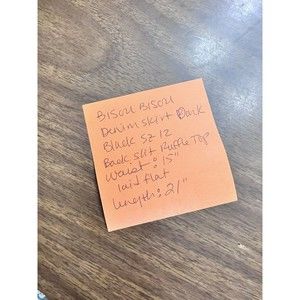 BISOU BISOU
Denim skirt Dark
Black SZ 12
Back slit Ruffle Top
waist: 15"
laid flat
length: 21"